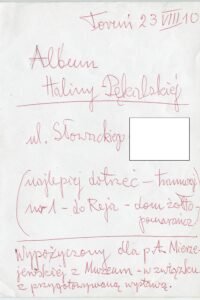 Toruń 23 VIII 10
Album
Haliny Pękalskiej
ul. Słowackiego
(najlepiej dotrzeć – tramwaj
nr 1 - do Reja - dom żółto-
pomarańcz)
Wypożyczony dla p. A. Mierze-
jewskiej z Muzeum - w związku
z przygotowywaną wystawą.